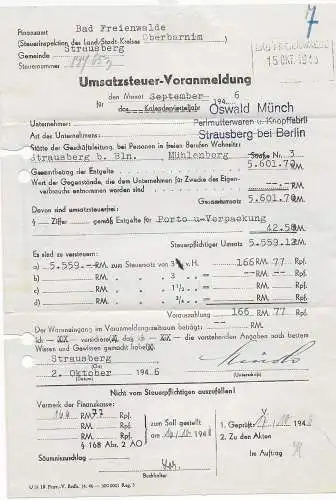 7
Finanzamt Bad Freienwalde
(Steuerinspektion des Land-Stadt-Kreises Oberbarnim)
Gemeinde Strausberg
Steuernummer
BAD FREIENWALDE
15 OKT. 1946
Umsatzsteuer-Voranmeldung
für den Monat September 1946
das Kalendervierteljahr
Oswald Münch
Unternehmer: Perlmutterwaren u. Knopffabrik
Art des Unternehmens: Strausberg bei Berlin
Stätte der Geschäftsleitung, bei Personen in freien Berufen Wohnort:
Strausberg b. Bln. Mühlenberg Straße Nr. 3
Gesamtbetrag der Entgelte 5.601.70
Wert der Gegenstände, die dem Unternehmen für Zwecke des Eigenverbrauchs entnommen worden sind RM.
Gesamtumsatz 5.601.70
Davon sind umsatzsteuerfrei:
§ Ziffer gemäß Entgelte für Porto u. Verpackung
42.58 RM.
Steuerpflichtiger Umsatz 5.559.12 RM.
Es sind zu versteuern:
a) 5.559.— RM. zum Steuersatz von 3 v. H. 166 RM. 77 Rpf.
b) RM. " " " 3 " = RM. Rpf.
c) RM. RM. Rpf.
d) RM. RM. Rpf.
Vorauszahlung 166 RM. 77 Rpf.
Der Wareneingang im Voranmeldungszeitraum beträgt: RM.
Ich XX versichere, daß ich XX die vorstehenden Angaben nach bestem
Wissen und Gewissen gemacht habe
Strausberg
(Ort)
2. Oktober 1946
(Datum)
(Unterschrift)
Nicht vom Steuerpflichtigen auszufüllen!
Vermerk der Finanzkasse:
166 RM 77 Rpf.
RM. Rpf.
RM. Rpf.
§ 168 Abs. 2 AO
Säumniszuschlag
zum Soll gestellt
am 1946
Buchhalter
1. Geprüft:
2. Zu den Akten
Im Auftrag